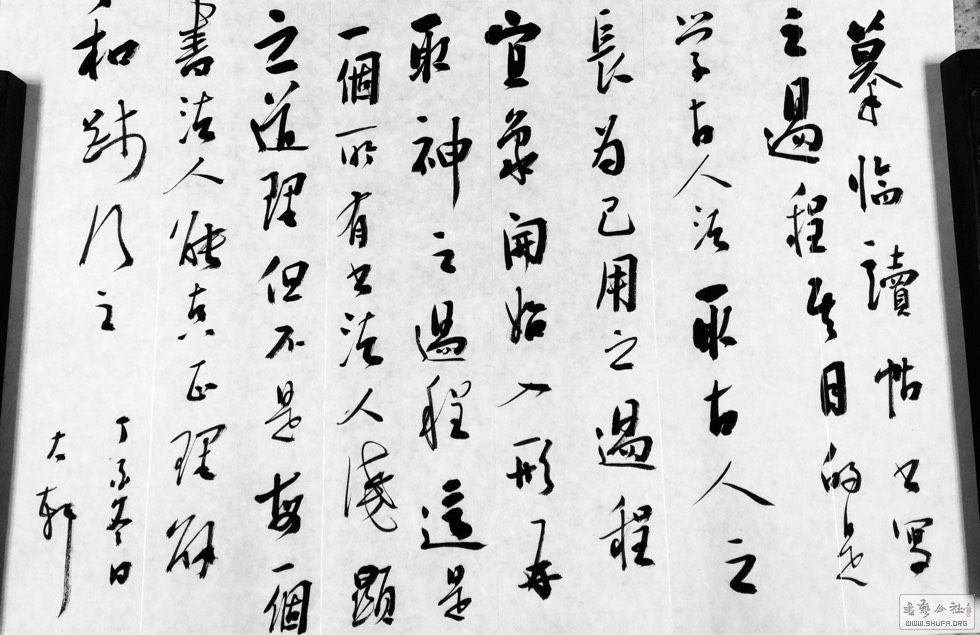 摹临讀帖书写
之過程其目的是
学古人法取古人之
長为己用之過程
宜象開始入形再
取神之過程這是
一個所有书法人淺顯
之道理但不是每一個
書法人能真正理解
和踐行之
丁酉冬日
古軒
书艺公社
WWW.SHUFA.ORG